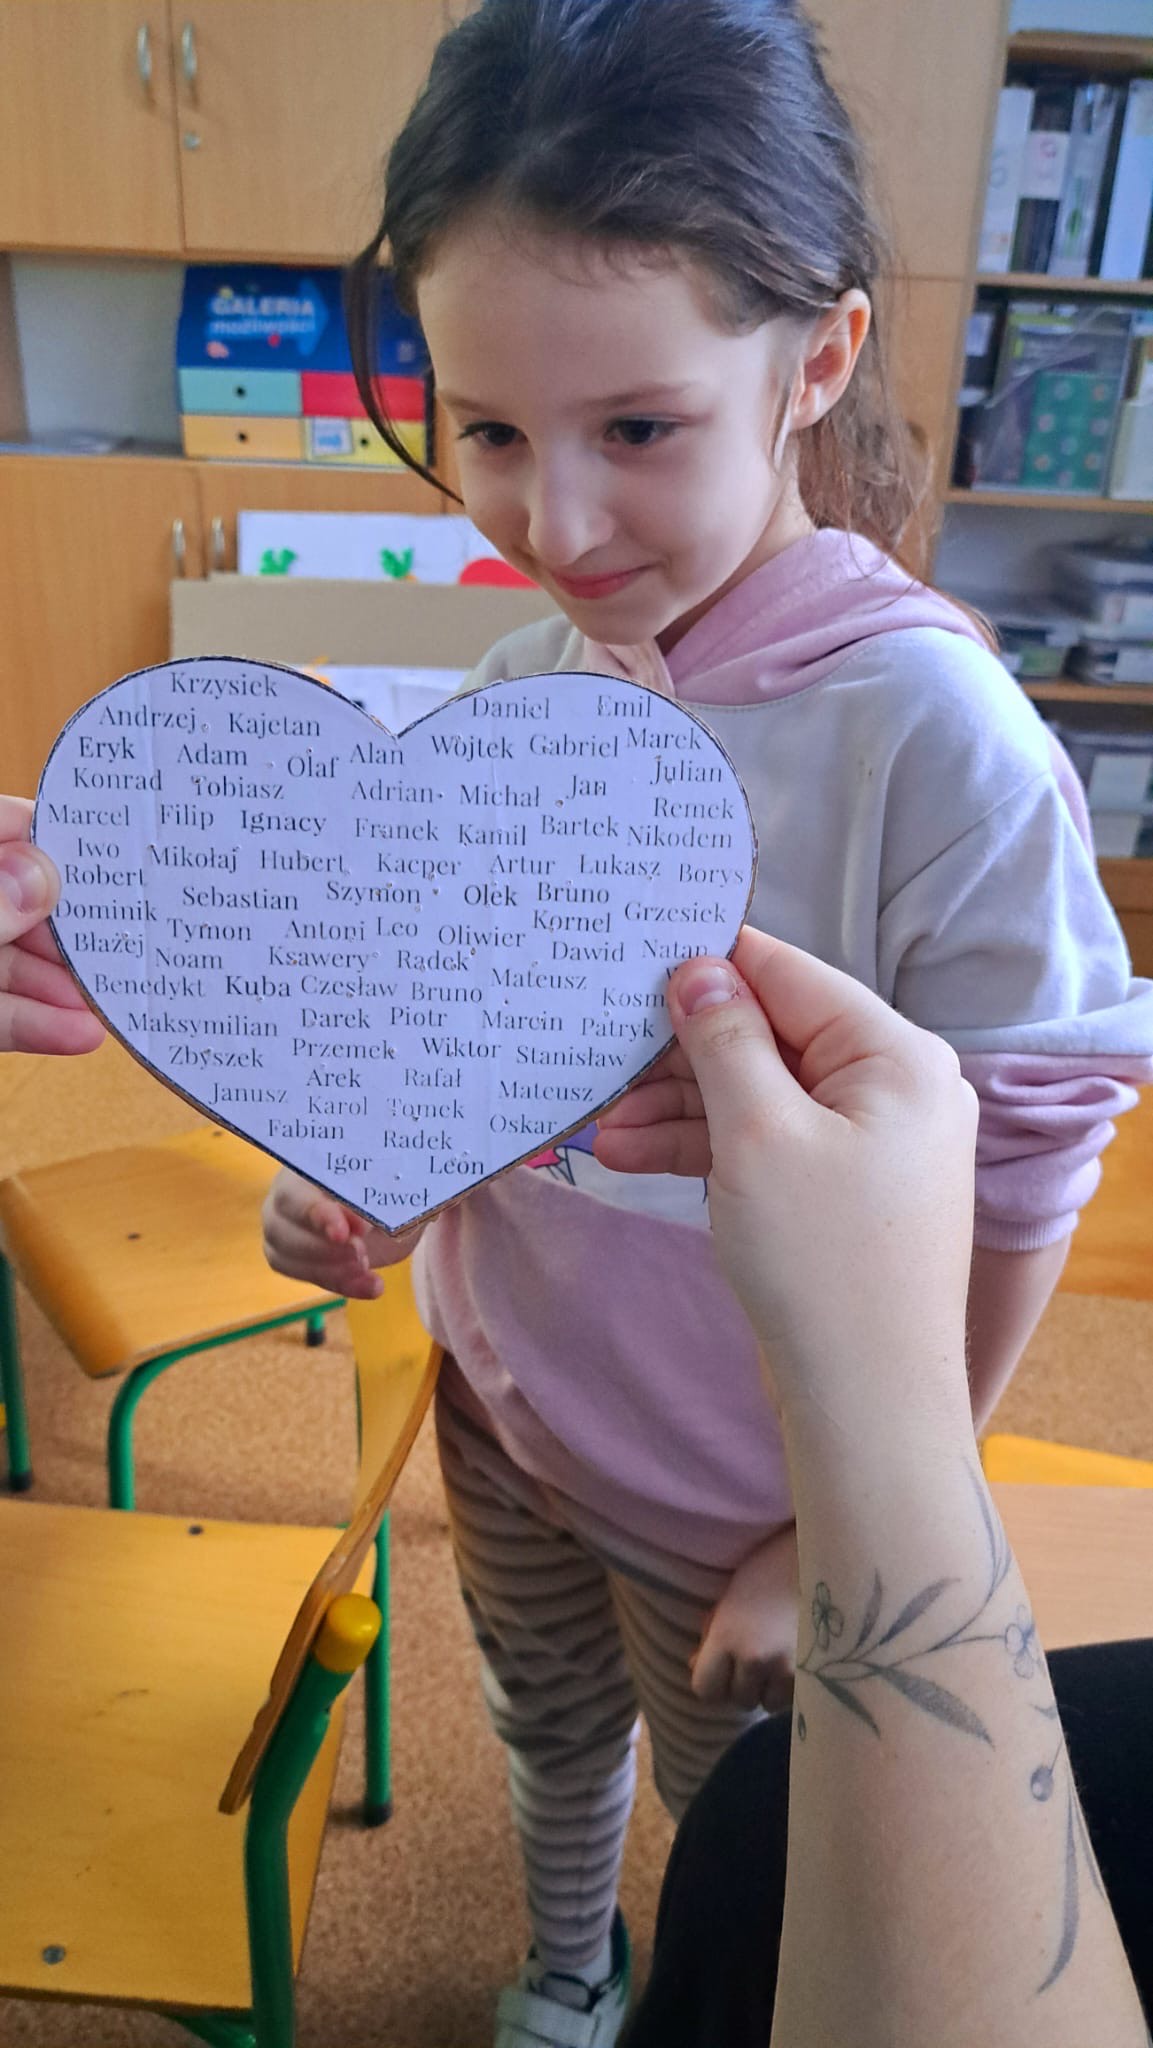 GALERIA
możliwości
Krzysiek
Daniel Emil
Andrzej Kajetan
Eryk Adam Olaf Alan Wojtek Gabriel Marek
Konrad Tobiasz Adrian Michał Jan Julian
Marcel Filip Ignacy Franek Kamil Bartek Remek
Nikodem
Iwo Mikołaj Hubert Kacper Artur Łukasz Borys
Robert Sebastian Szymon Olek Bruno
Dominik Tymon Antoni Leo Oliwier Kornel Grzesiek
Błażej Noam Ksawery Radek Dawid Natan
Benedykt Kuba Czesław Bruno Mateusz
Maksymilian Darek Piotr Marcin Patryk
Zbyszek Przemek Wiktor Stanisław
Janusz Arek Rafał Mateusz
Karol Tomek
Fabian Radek Oskar
Igor Leon
Paweł